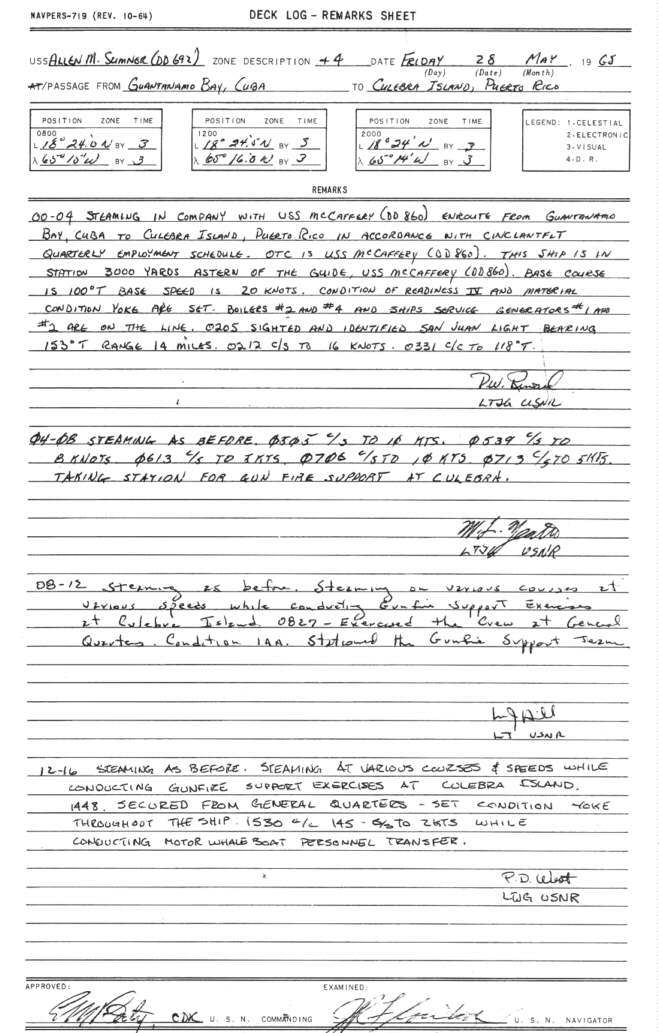 NAVPERS-719 (REV. 10-64) DECK LOG - REMARKS SHEET
USS ALLEN M. SUMNER (DD 692) ZONE DESCRIPTION +4 DATE FRIDAY 28 MAY, 1965
(Day) (Date) (Month)
AT/PASSAGE FROM GUANTANAMO BAY, CUBA TO CULEBRA ISLAND, PUERTO RICO
POSITION ZONE TIME
0800
L 18° 24.0 N BY 3
λ 65° 15' W BY 3
POSITION ZONE TIME
1200
L 18° 24.5' N BY 3
λ 65° 16.0 W BY 3
POSITION ZONE TIME
2000
L 18° 24' N BY 3
λ 65° 14' W BY 3
LEGEND: 1-CELESTIAL
2-ELECTRONIC
3-VISUAL
4-D. R.
REMARKS
00-04 STEAMING IN COMPANY WITH USS McCAFFERY (DD 860) ENROUTE FROM GUANTANAMO
BAY, CUBA TO CULEBRA ISLAND, PUERTO RICO IN ACCORDANCE WITH CINCLANTFLT
QUARTERLY EMPLOYMENT SCHEDULE. OTC IS USS McCAFFERY (DD 860). THIS SHIP IS IN
STATION 3000 YARDS ASTERN OF THE GUIDE, USS McCAFFERY (DD 860). BASE COURSE
IS 100°T BASE SPEED IS 20 KNOTS. CONDITION OF READINESS IV AND MATERIAL
CONDITION YOKE ARE SET. BOILERS #2 AND #4 AND SHIPS SERVICE GENERATORS #1 AND
#2 ARE ON THE LINE. 0205 SIGHTED AND IDENTIFIED SAN JUAN LIGHT BEARING
153°T RANGE 14 MILES. 0212 C/S TO 16 KNOTS. 0331 C/C TO 118°T.
LTJG USNR
04-08 STEAMING AS BEFORE. 0505 C/S TO 10 KTS. 0539 C/S TO
8 KNOTS 0613 C/S TO 5 KTS. 0706 C/S TO 10 KTS 0713 C/S TO 5 KTS.
TAKING STATION FOR GUN FIRE SUPPORT AT CULEBRA.
LTJG USNR
08-12 Steaming as before. Steaming on various courses at
various speeds while conducting Gunfire Support Exercises
at Culebra Island. 0827 - Exercised the Crew at General
Quarters. Condition 1AA. Stationed the Gunfire Support Team
LT USNR
12-16 STEAMING AS BEFORE. STEAMING AT VARIOUS COURSES & SPEEDS WHILE
CONDUCTING GUNFIRE SUPPORT EXERCISES AT CULEBRA ISLAND.
1448. SECURED FROM GENERAL QUARTERS - SET CONDITION YOKE
THROUGHOUT THE SHIP. 1530 C/C 145 - C/S TO 2 KTS WHILE
CONDUCTING MOTOR WHALE BOAT PERSONNEL TRANSFER.
P.D. West
LTJG USNR
APPROVED: EXAMINED:
CDR U. S. N. COMMANDING U. S. N. NAVIGATOR